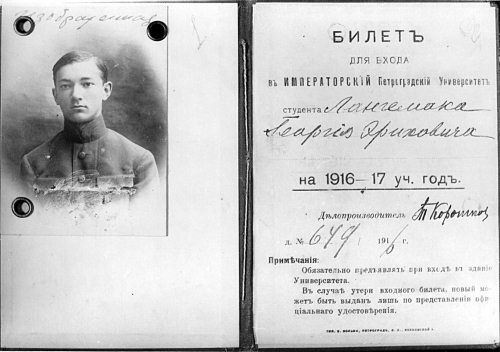 Изображенная
БИЛЕТЪ
ДЛЯ ВХОДА
въ ИМПЕРАТОРСКІЙ Петроградскій Университетъ
студента Лангемака
Георгія Эриховича
на 1916—17 уч. годъ.
Дѣлопроизводитель
л. № 649 1916 г.
Примѣчанія:
Обязательно предъявлять при входѣ въ зданіе
Университета.
Въ случаѣ утери входного билета, новый мо-
жетъ быть выданъ лишь по представленіи офи-
ціальнаго удостовѣренія.